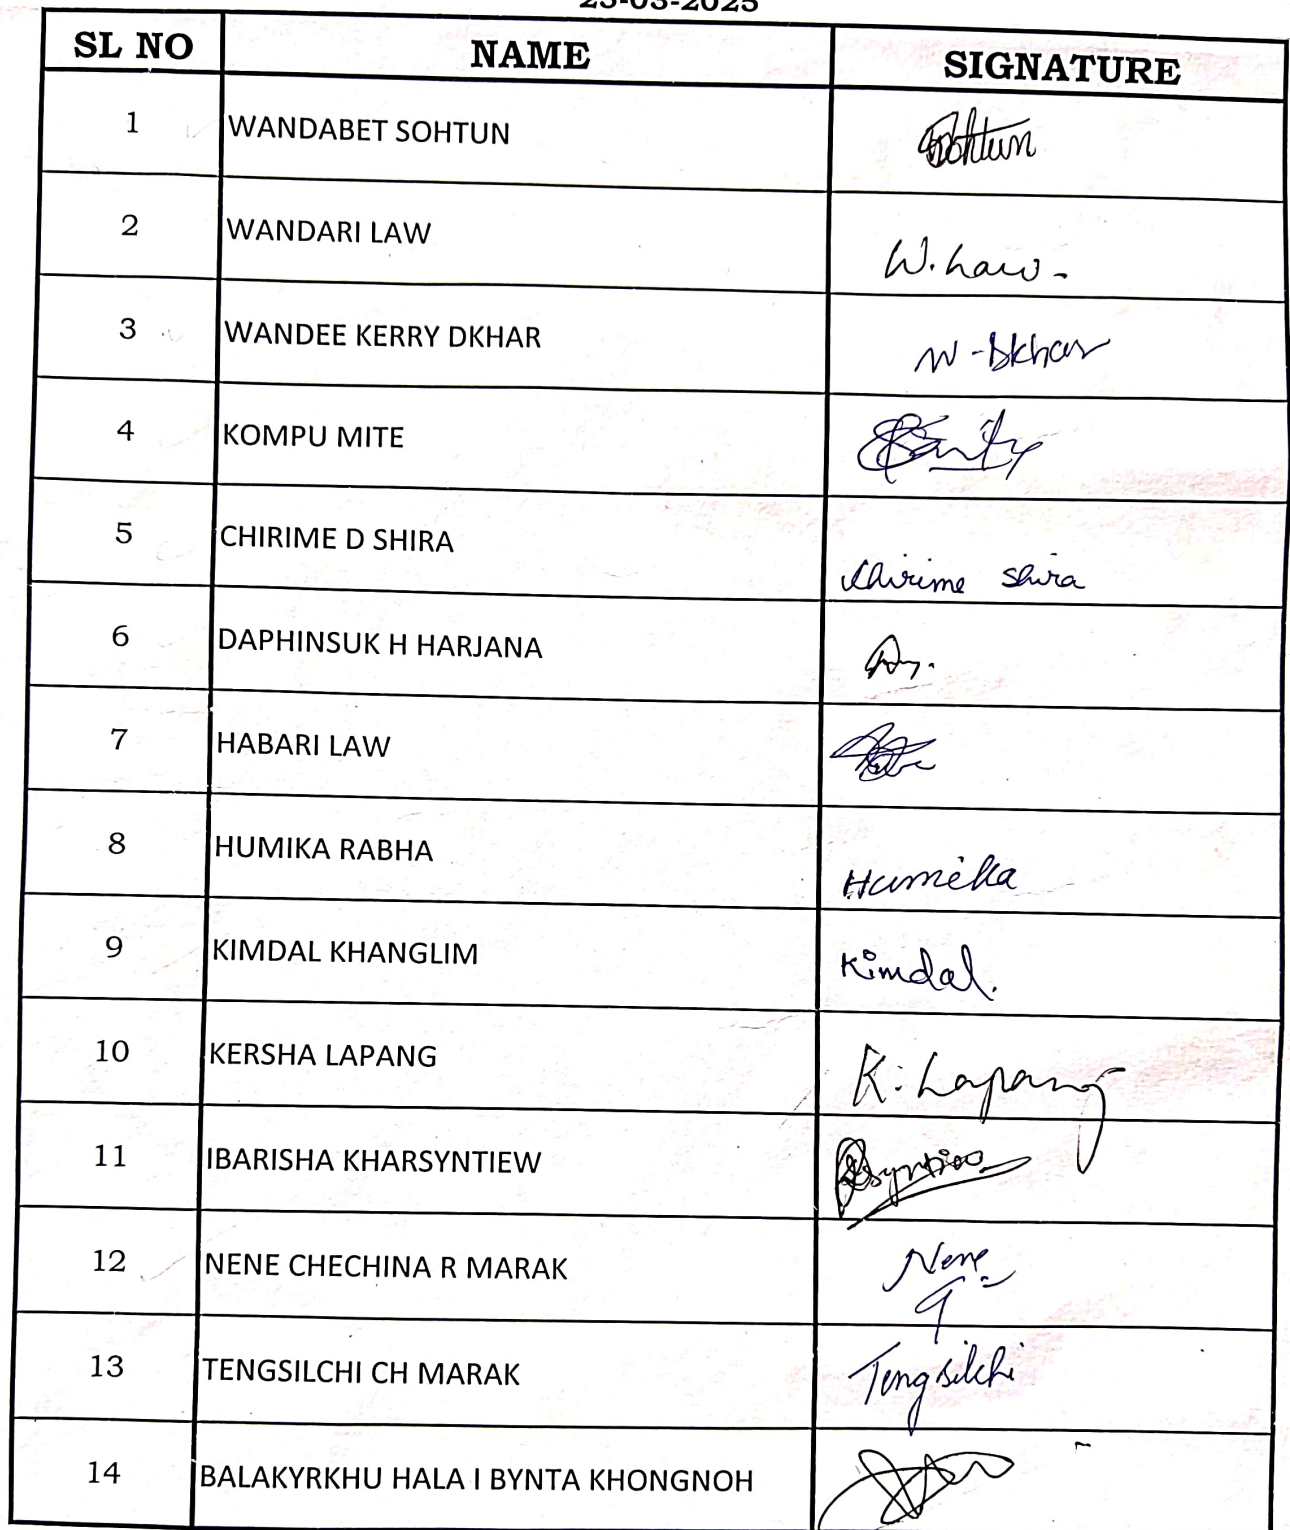 23-03-2025
SL NO NAME SIGNATURE
1 WANDABET SOHTUN Sohtun
2 WANDARI LAW W. Law -
3 WANDEE KERRY DKHAR W - Dkhar
4 KOMPU MITE
5 CHIRIME D SHIRA Chirime Shira
6 DAPHINSUK H HARJANA
7 HABARI LAW
8 HUMIKA RABHA Humika
9 KIMDAL KHANGLIM Kimdal.
10 KERSHA LAPANG K. Lapang
11 IBARISHA KHARSYNTIEW
12 NENE CHECHINA R MARAK Nene
13 TENGSILCHI CH MARAK Tengsilchi
14 BALAKYRKHU HALA I BYNTA KHONGNOH